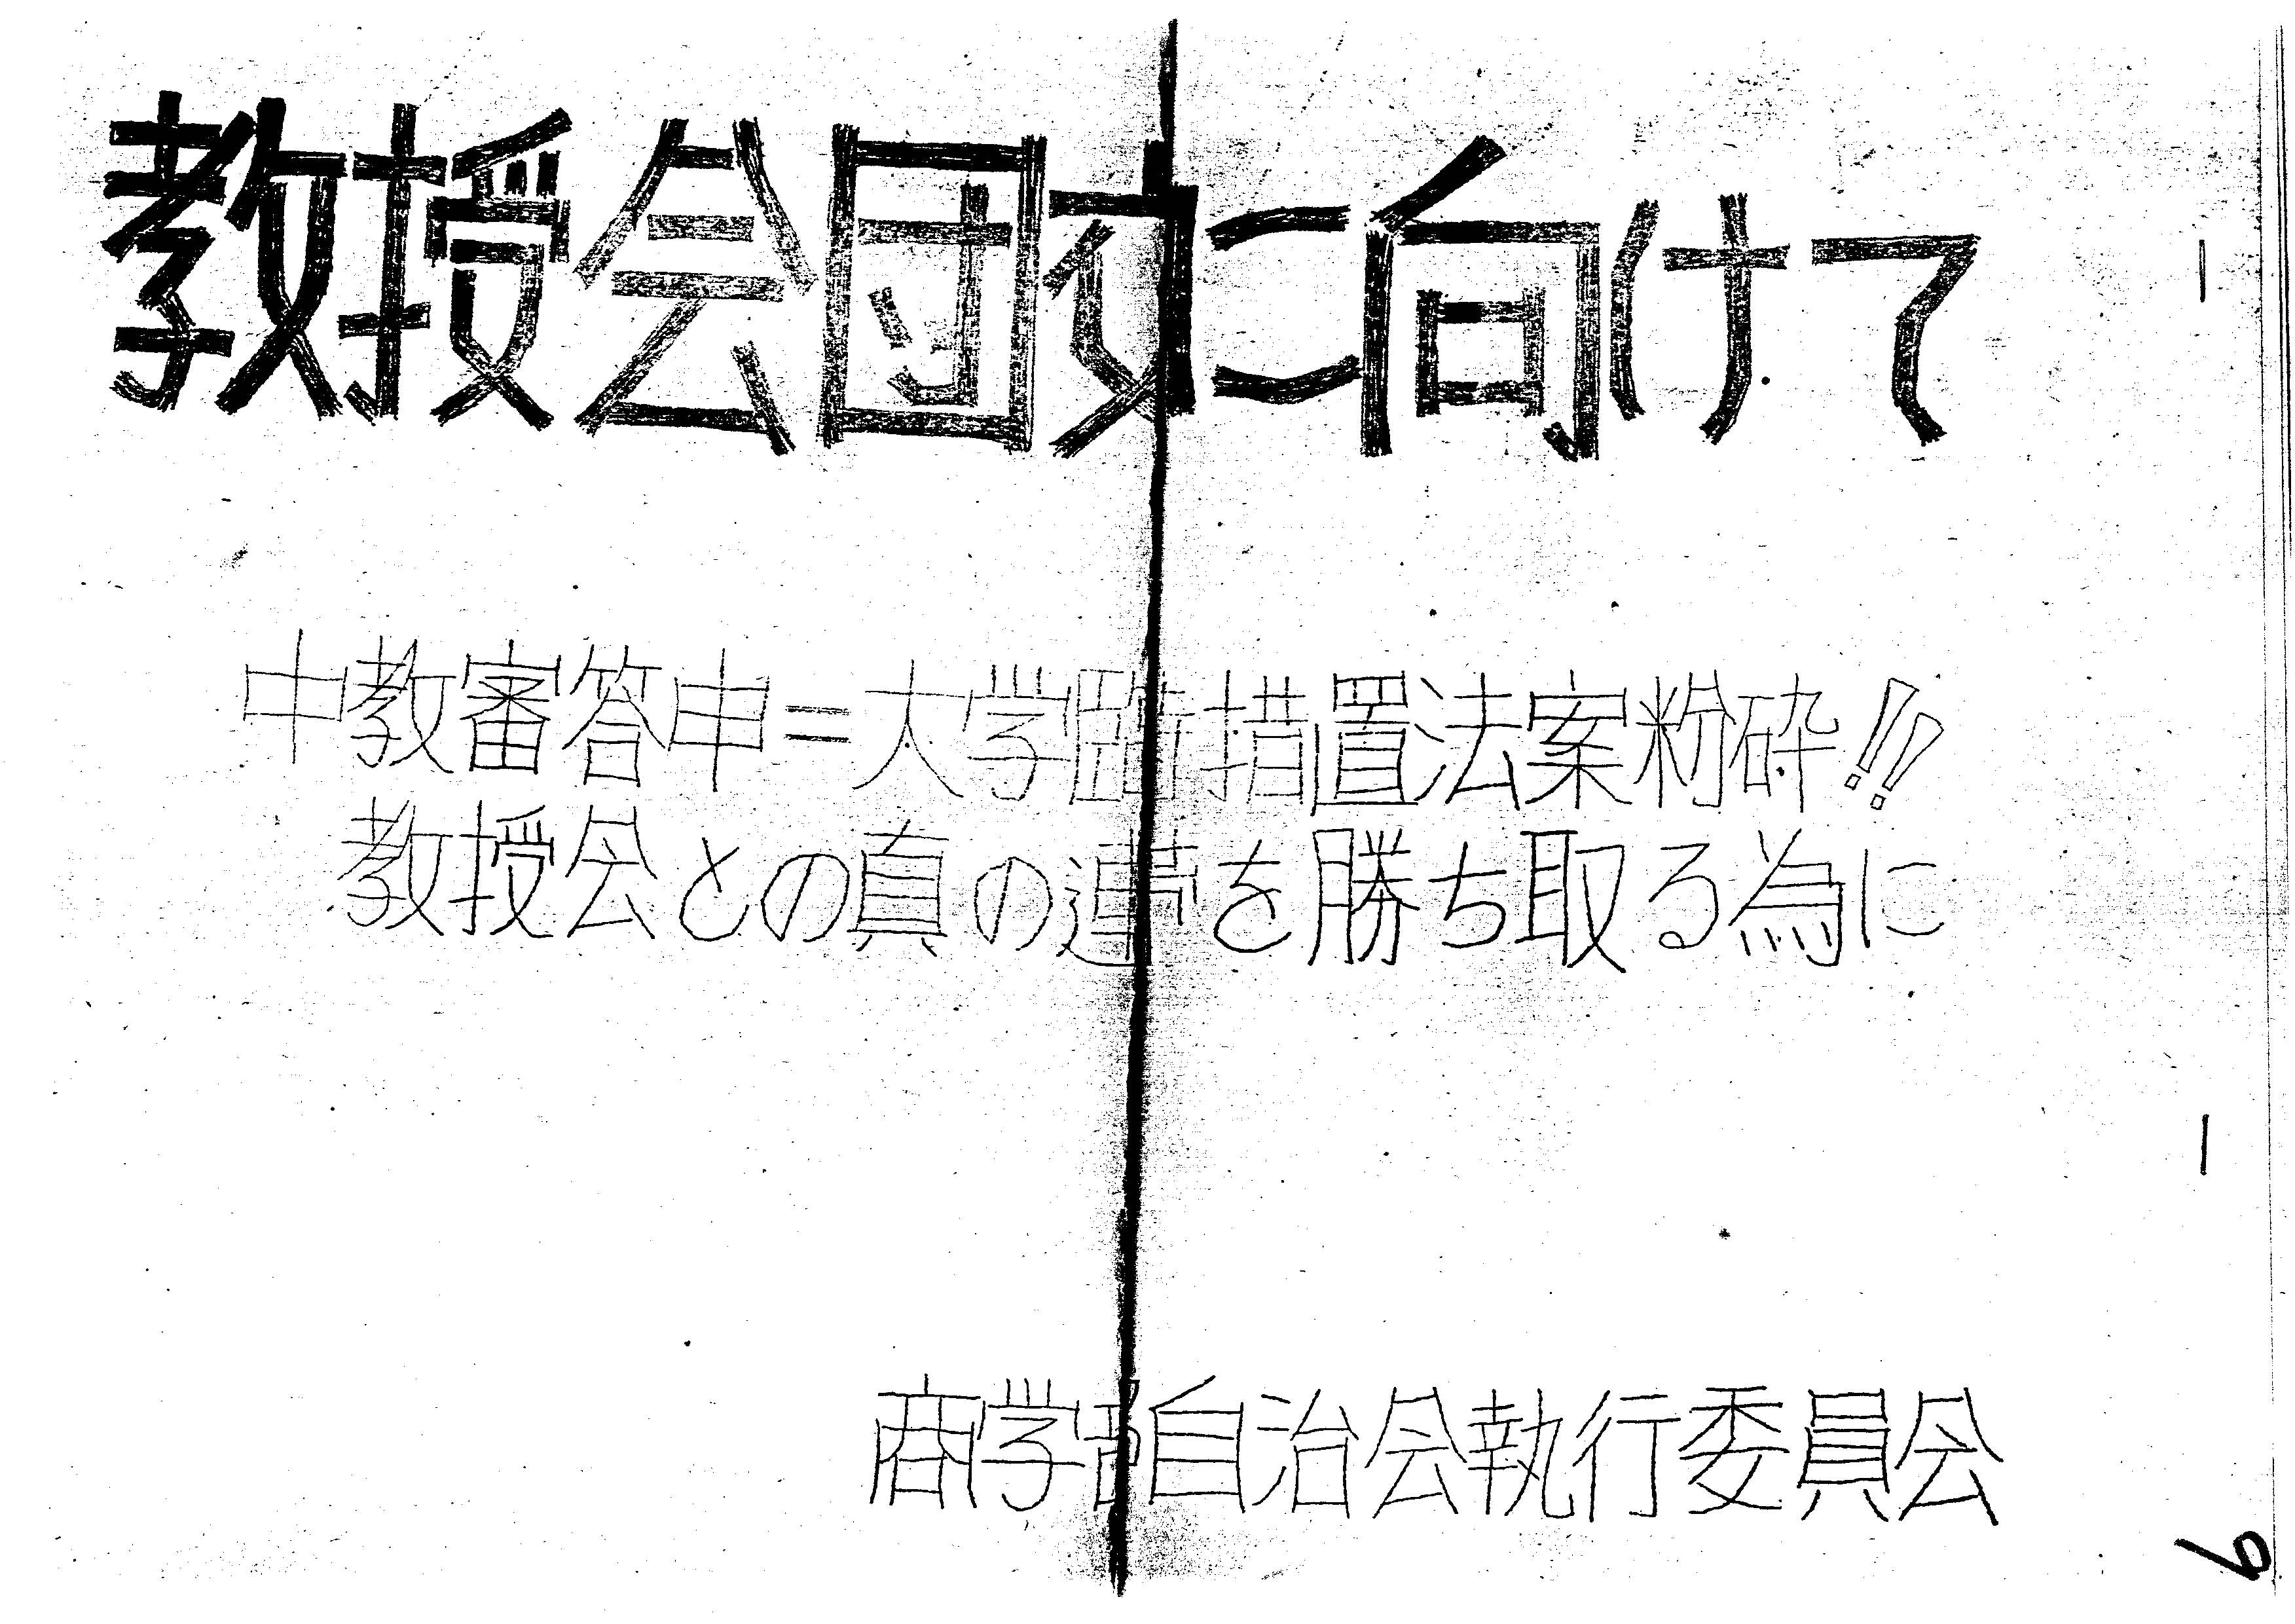 教授会団交に向けて
中教審答申=大学臨措置法案粉砕!!
教授会との真の連帯を勝ち取る為に
商学部自治会執行委員会
6